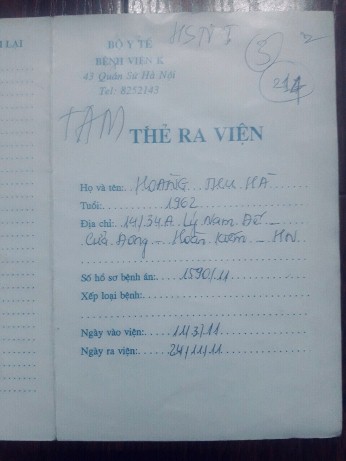 LẠI
BỘ Y TẾ
BỆNH VIỆN K
43 Quán Sứ Hà Nội
Tel: 8252143
HSNI
5
2
214
TAM
THẺ RA VIỆN
Họ và tên: HOÀNG THU HÀ
Tuổi: 1962
Địa chỉ: 14/34A Lý Nam Đế -
Cửa Đông - Hoàn Kiếm - HN
Số hồ sơ bệnh án: 1590/11
Xếp loại bệnh:
Ngày vào viện: 11/3/11
Ngày ra viện: 24/11/11